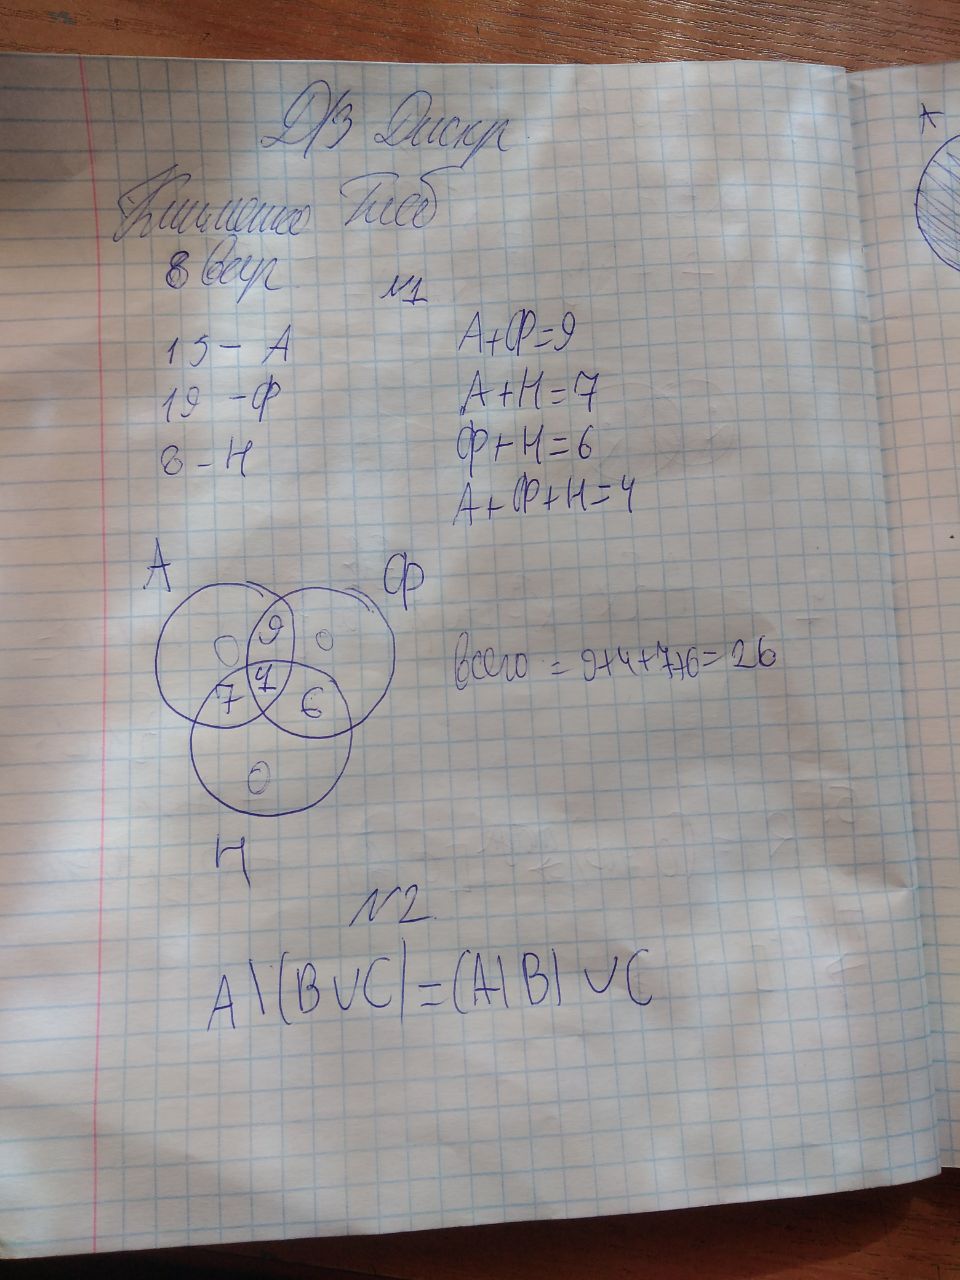 Д/З Дискр.
Глеб
8 Вар
№1
15 - А
19 - Ф
8 - Н
А+Ф=9
А+Н=7
Ф+Н=6
А+Ф+Н=4
А
Ф
0 9 0
4
7 6
0
Н
Всего = 9+4+7+6=26
№2.
A\(B∪C)=(A\B)∪C
A